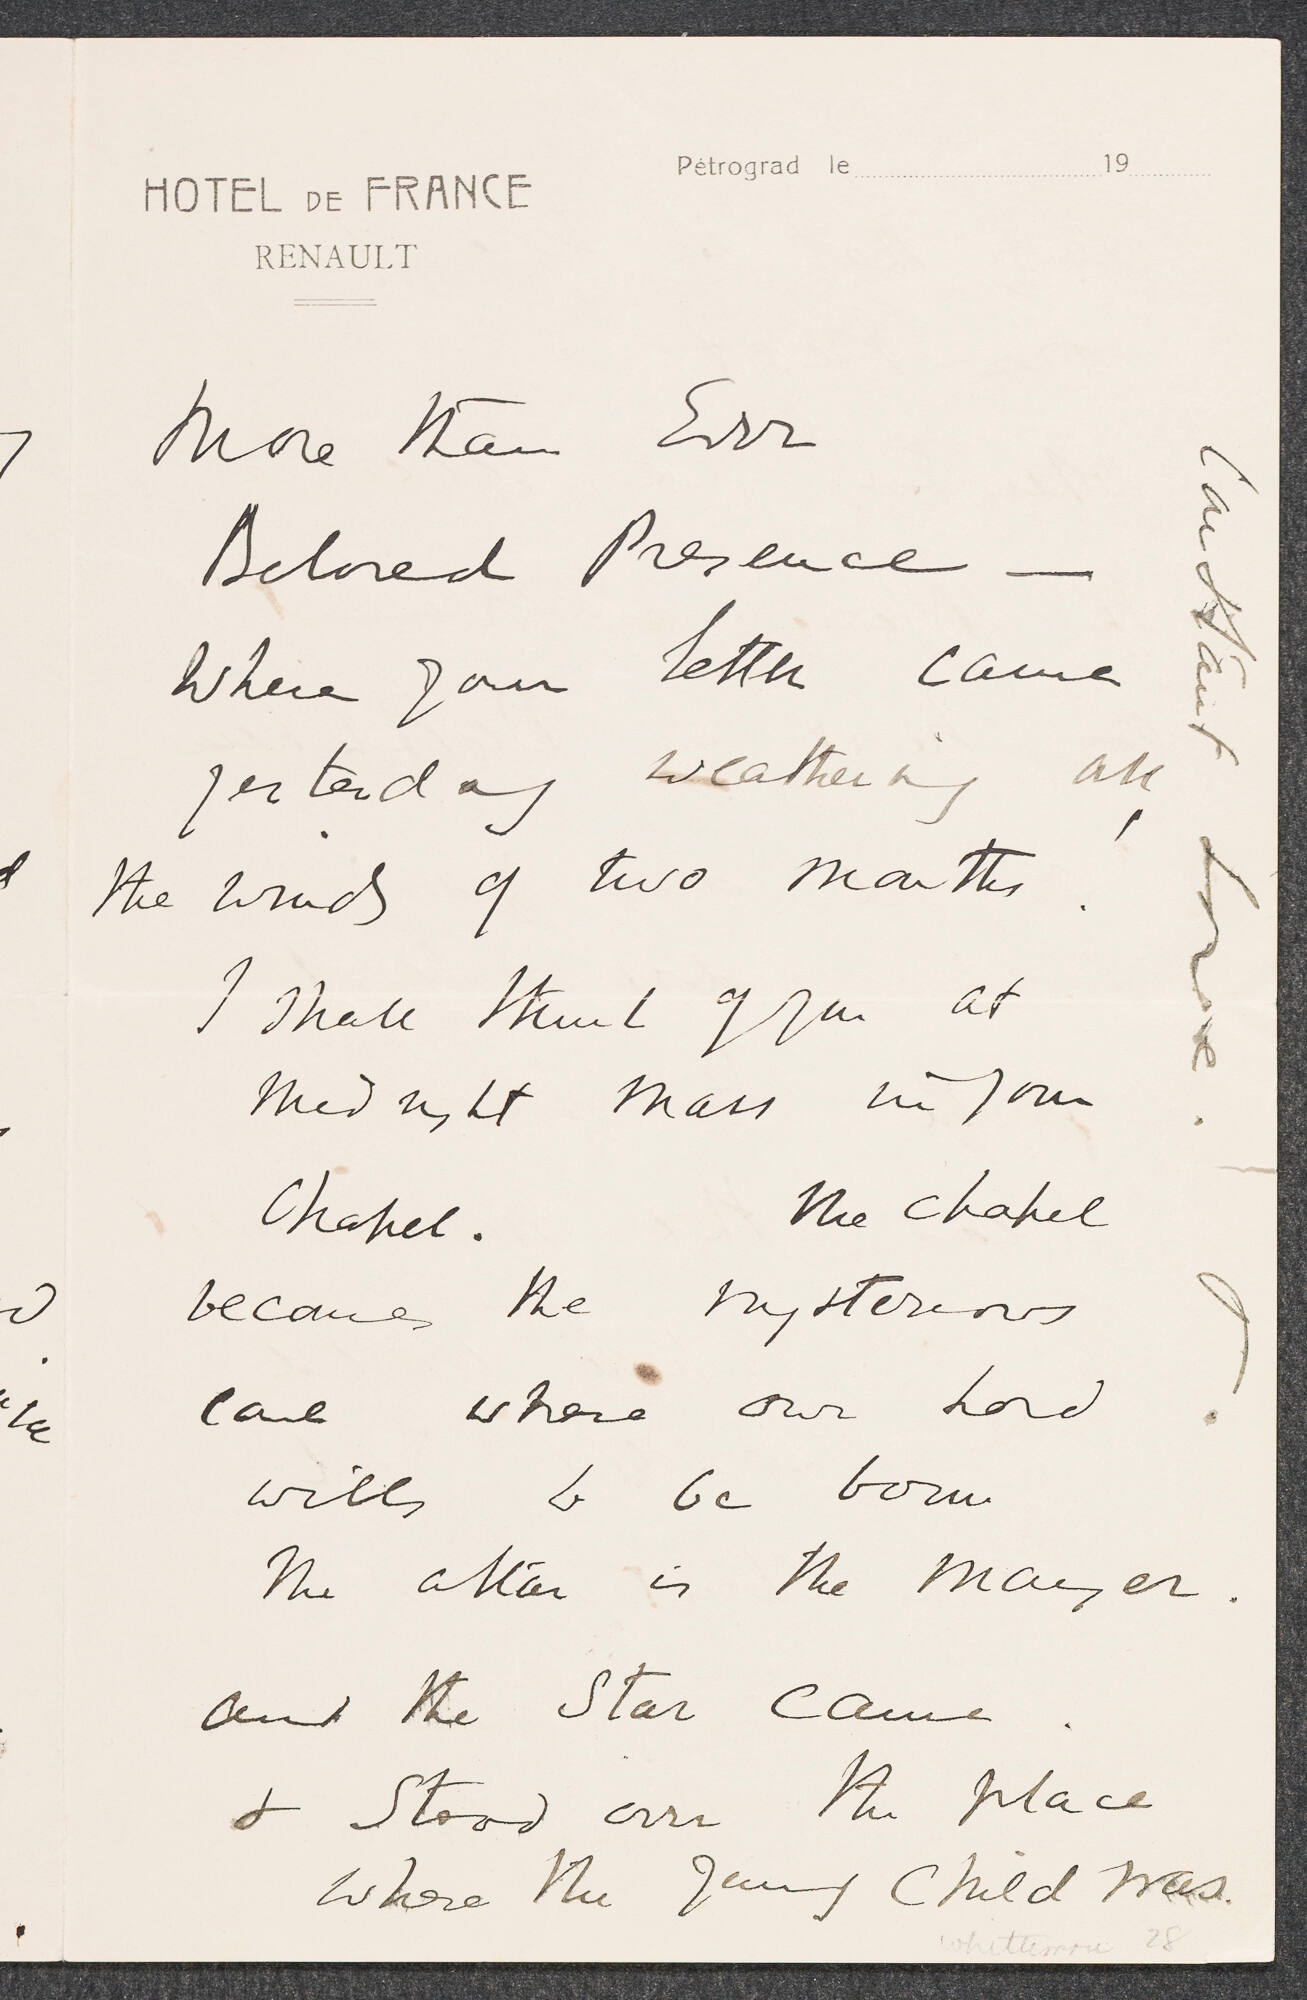 HOTEL DE FRANCE
RENAULT
Pétrograd le 19
More than Ever
Beloved Presence —
Where your letter came
yesterday weathering all
the winds of two months!
I shall think of you at
Midnight Mass in your
Chapel. The chapel
becomes the mysterious
cave where our Lord
wills to be born
The altar is the Manger.
and the Star came.
& Stood over the place
where the young Child was.
Constant Love.
Whittemore 28